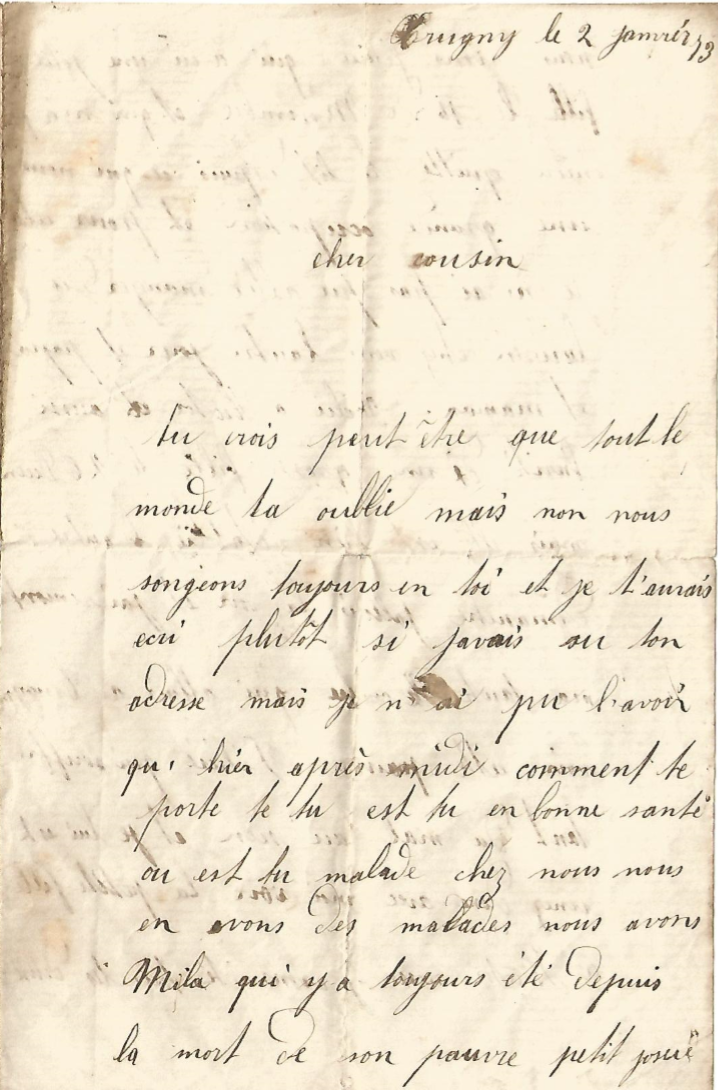 Xrugny le 2 janvier 73
cher cousin
tu crois peut être que tout le
monde ta oublie mais non nous
songeons toujours en toi et je t'aurais
ecri plutôt si javais su ton
adresse mais je n'ai pu l'avoir
qu' hier après midi comment te
porte te tu est tu en bonne santé
ou est tu malade chez nous nous
en avons des malades nous avons
Mila qui y a toujours été depuis
la mort de son pauvre petit josué